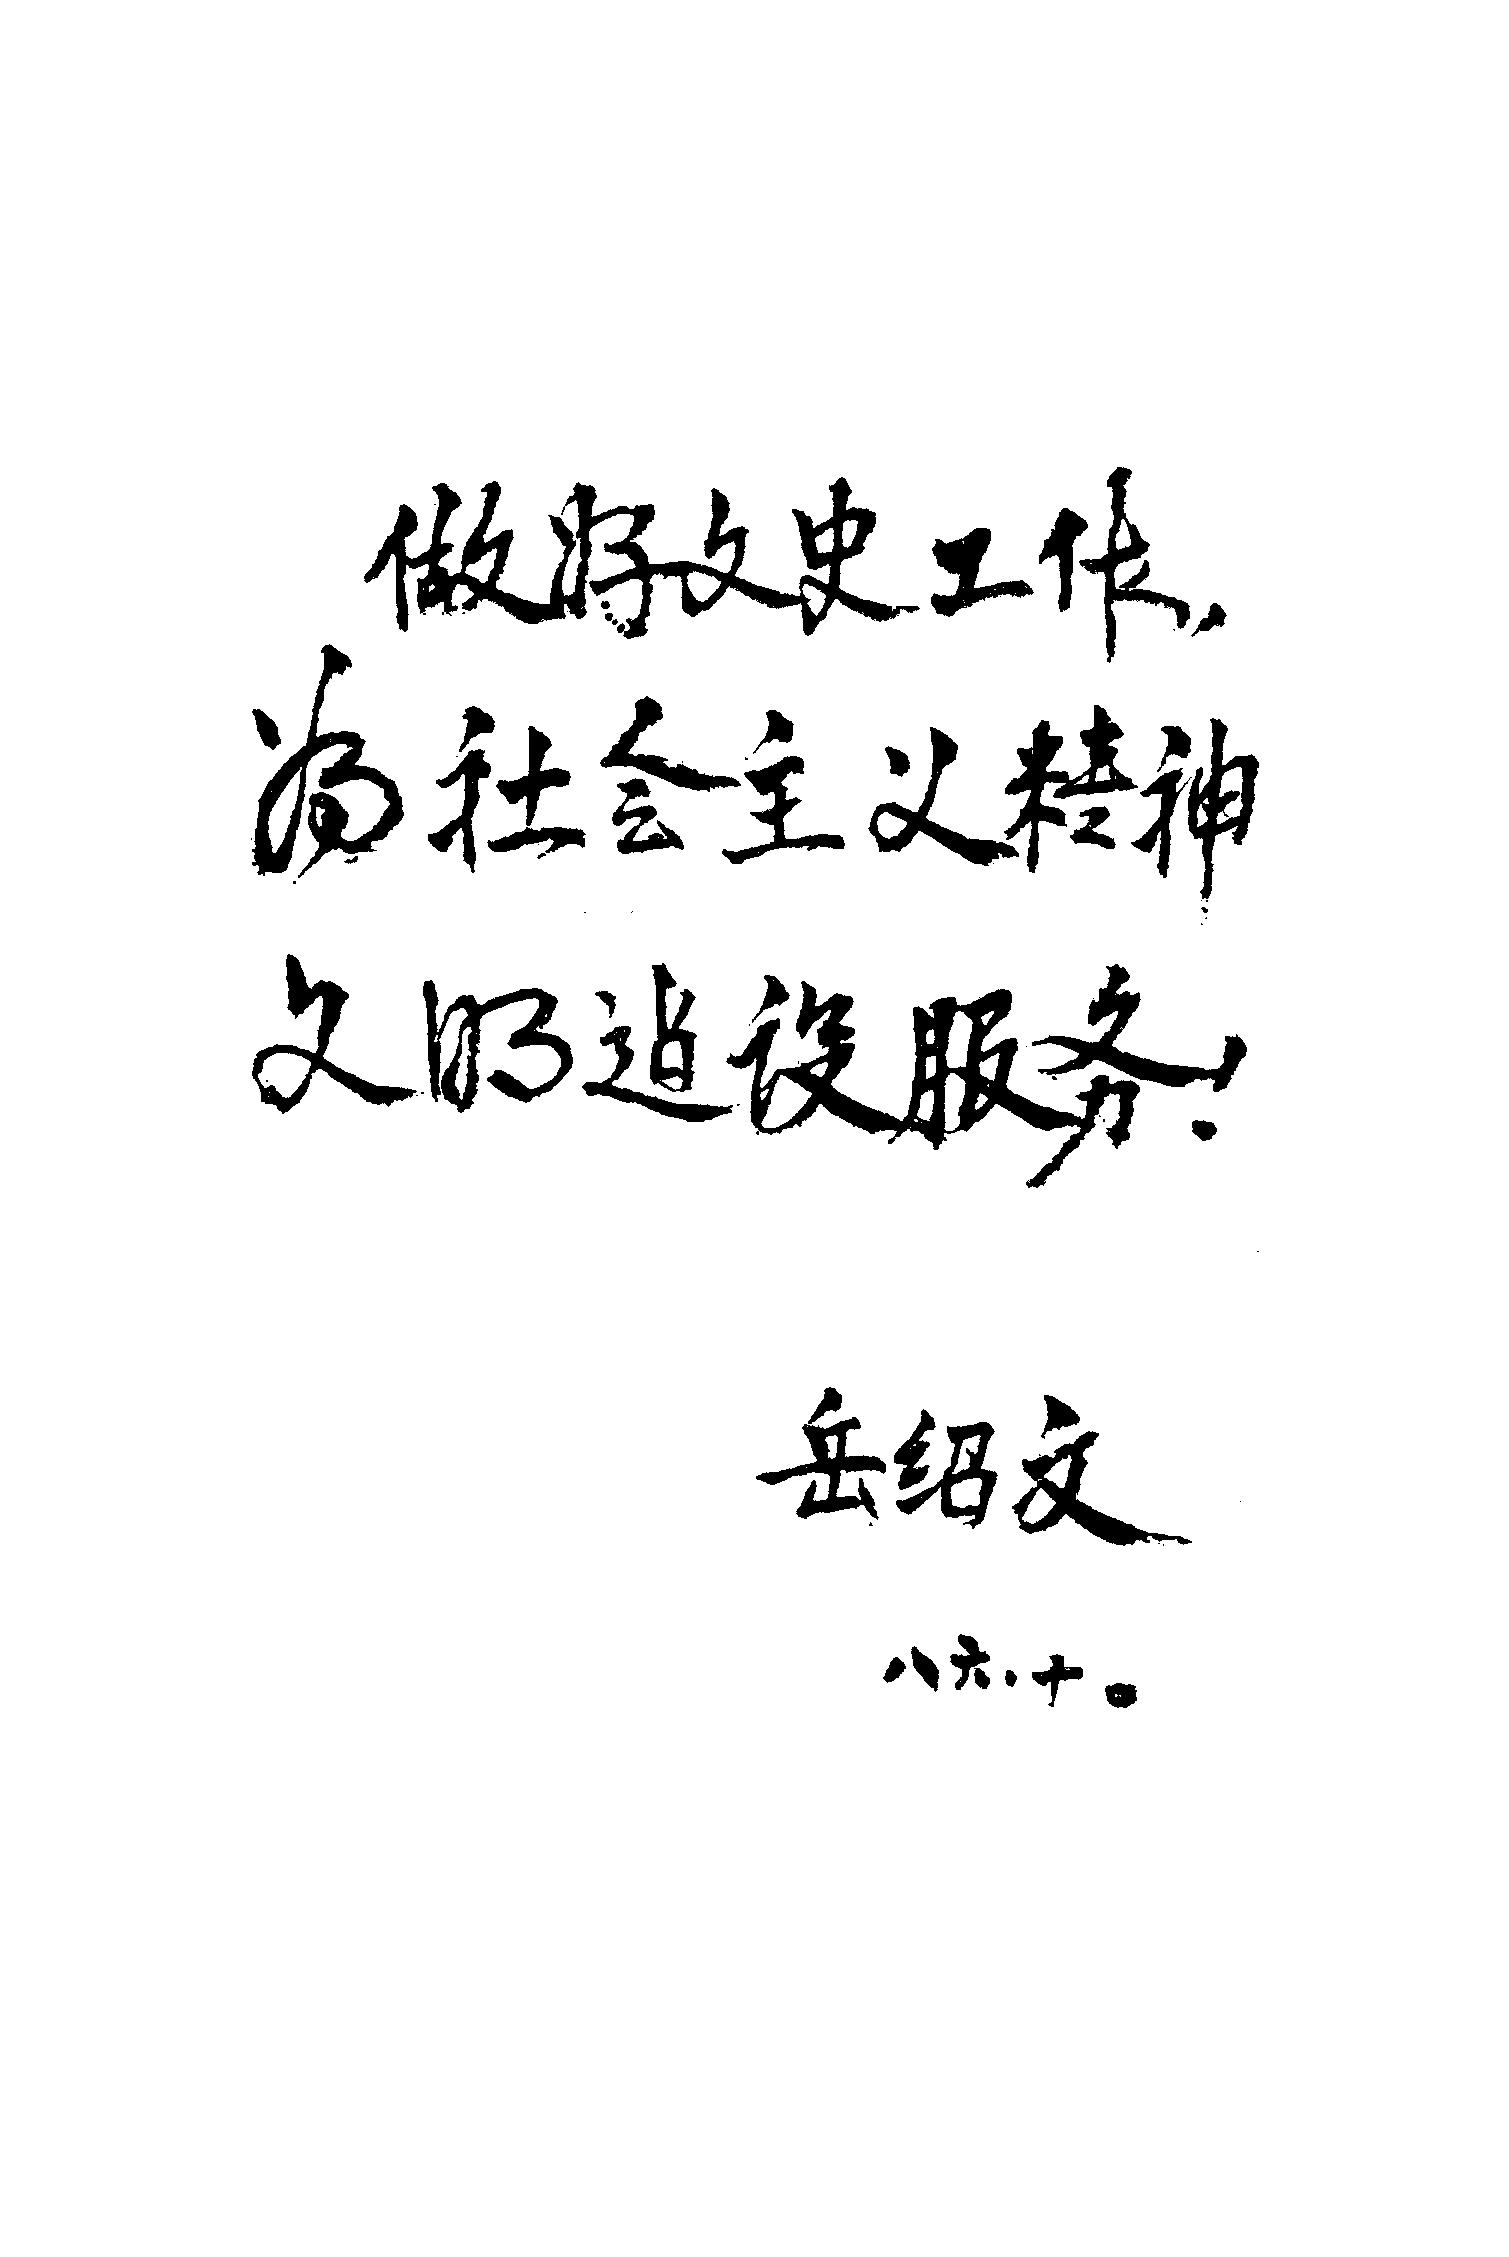 做好文史工作，
为社会主义精神
文明建设服务！
岳绍文
八六·十。